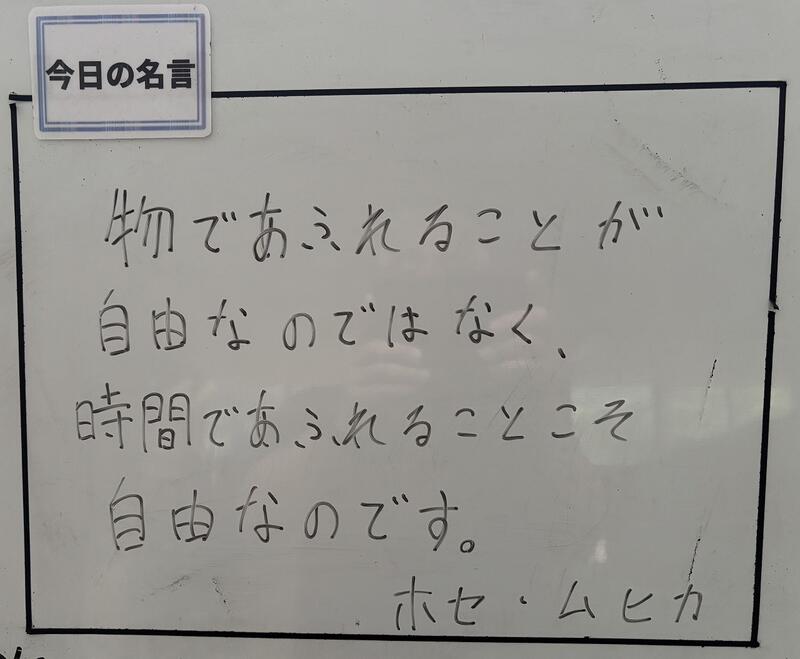 今日の名言
物であふれることが
自由なのではなく、
時間であふれることこそ
自由なのです。
ホセ・ムヒカ